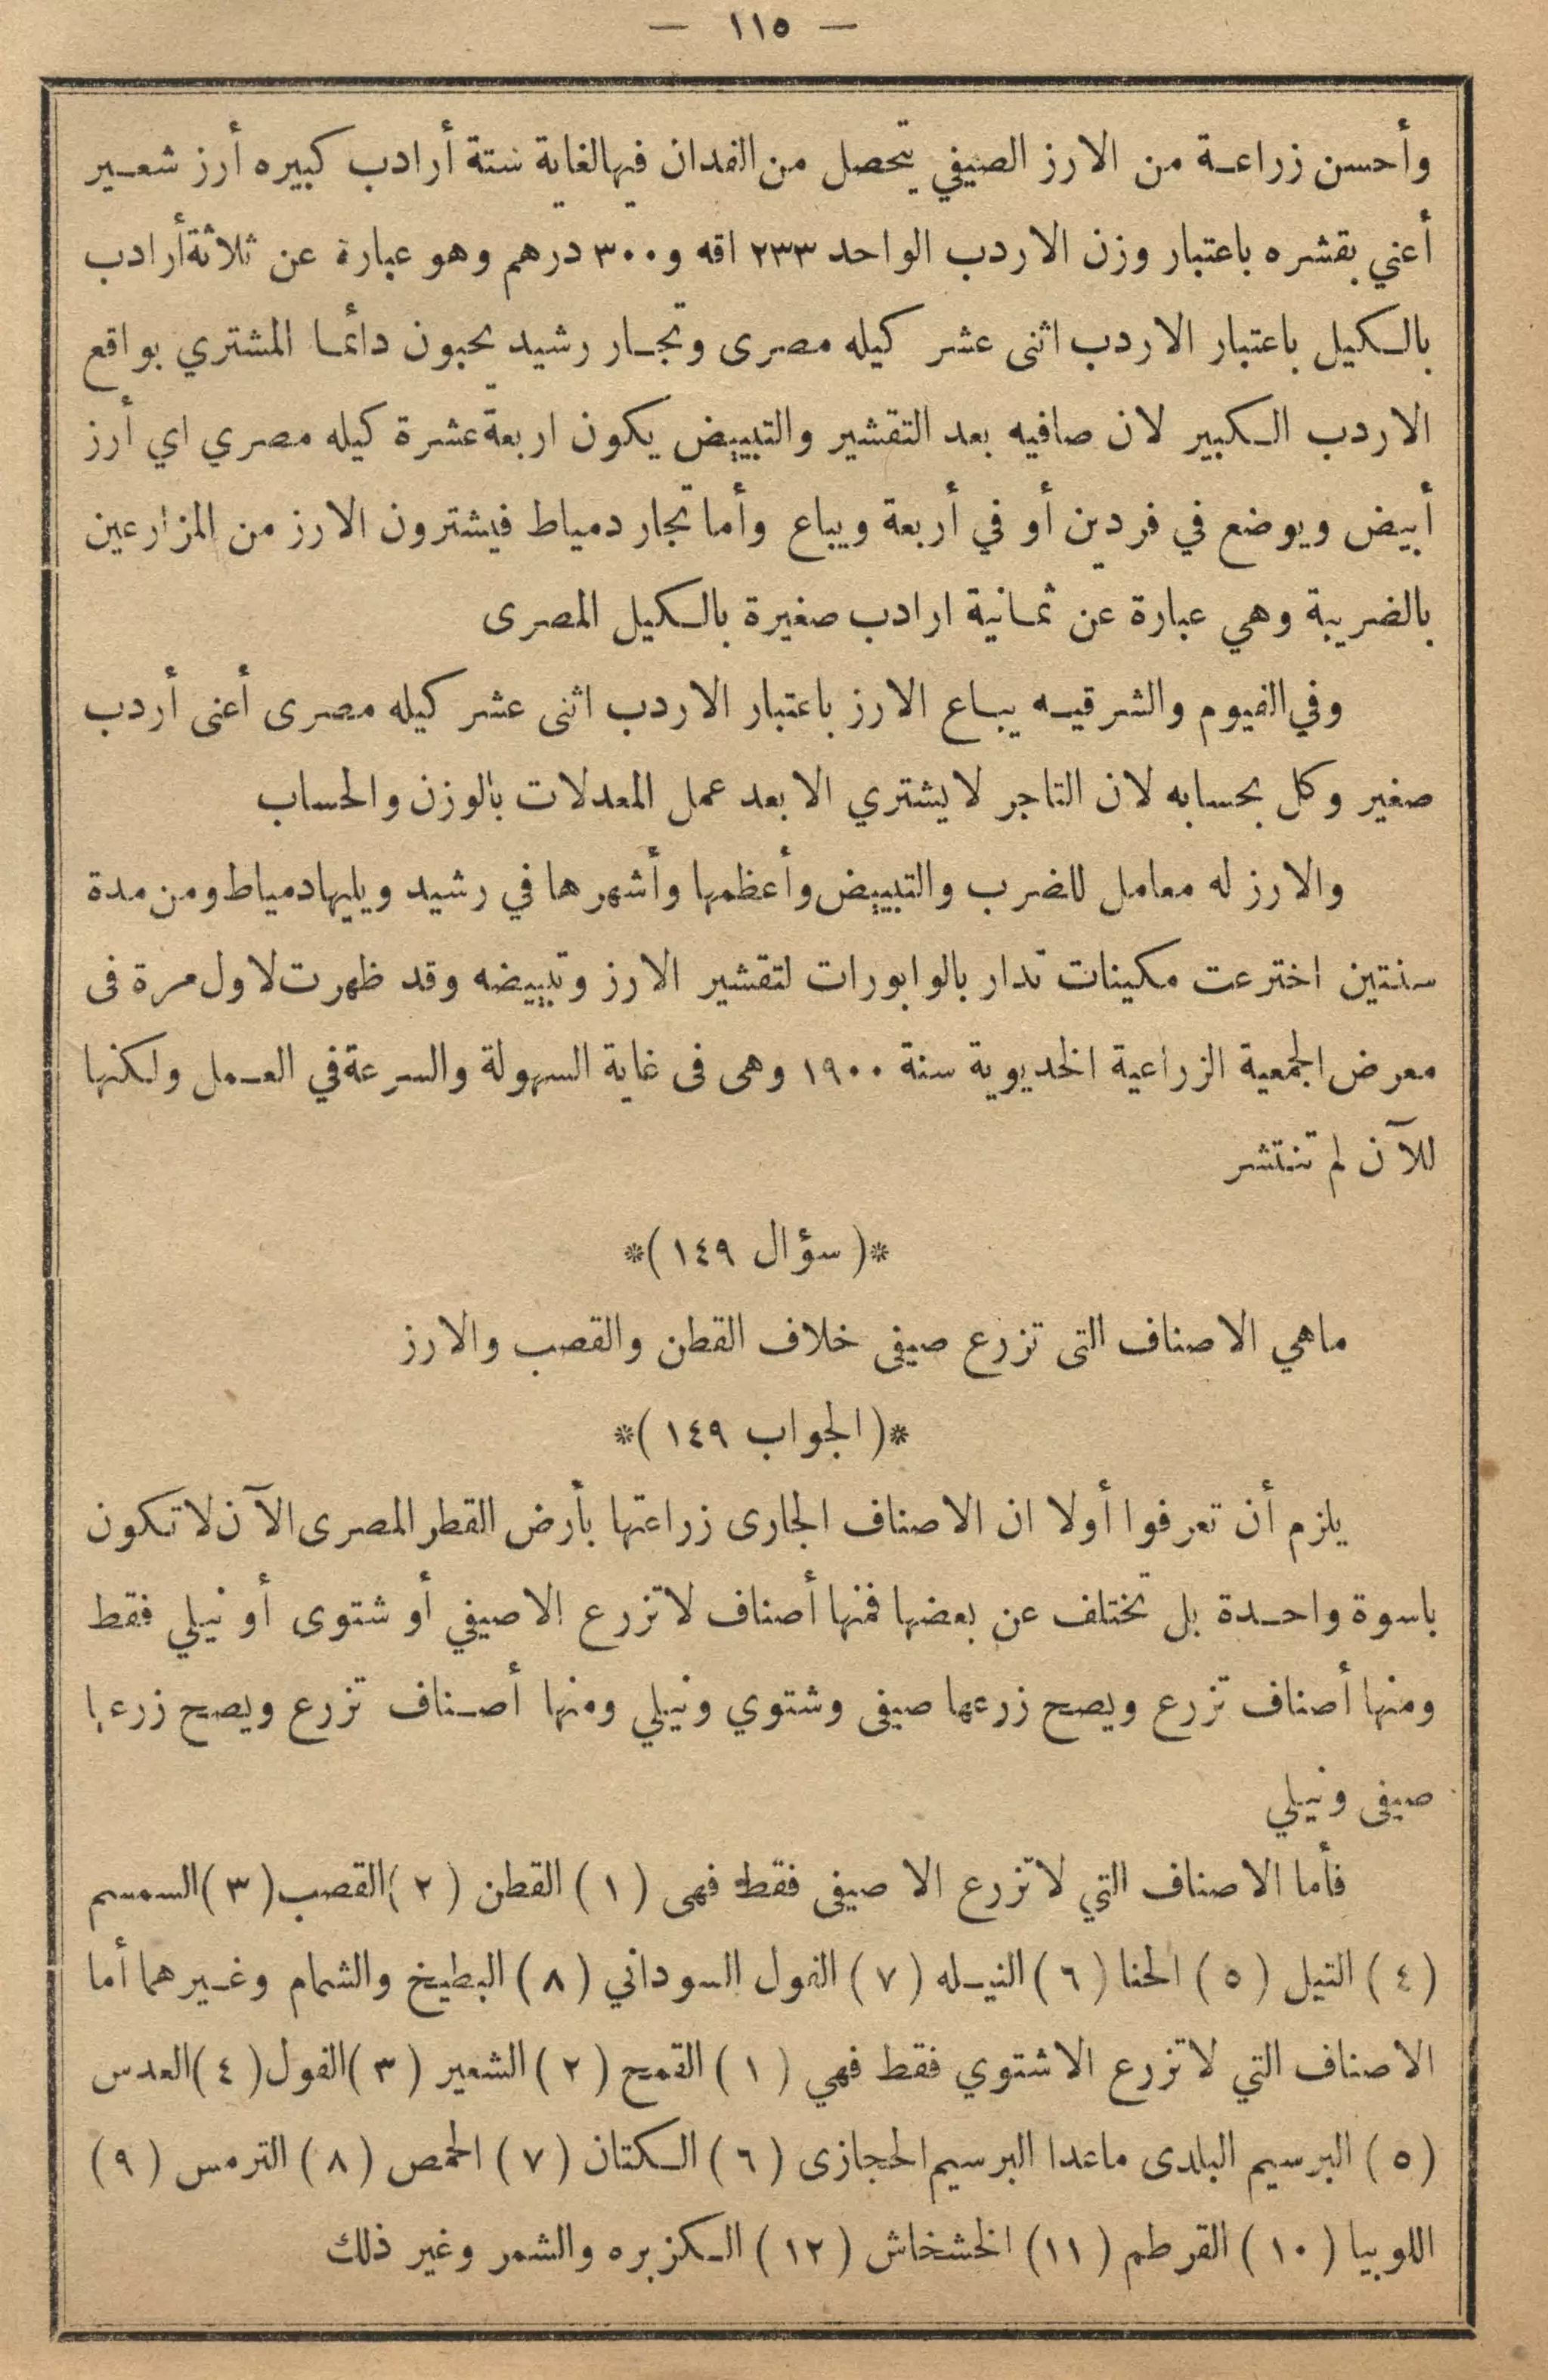 — ١١٥ —
وأحسن زراعة من الارز الصيفي يتحصل من الفدان فيها لغاية ستة أرادب كبيره أرز شعير
أعني بقشره باعتبار وزن الاردب الواحد ٢٣٣ اقه و ٣٠٠ درهم وهو عبارة عن ثلاثة أرادب
بالكيل باعتبار الاردب اثنى عشر كيله مصرى وتجار رشيد يحبون دائما المشتري بواقع
الاردب الكبير لان صافيه بعد التقشير والتبييض يكون اربعة عشرة كيله مصري اي أرز
أبيض ويوضع في فردين أو في أربعة ويباع وأما تجار دمياط فيشترون الارز من المزارعين
بالضريبة وهي عبارة عن ثمانية ارادب صغيرة بالكيل المصرى
وفي الفيوم والشرقيه يباع الارز باعتبار الاردب اثنى عشر كيله مصرى أعنى أردب
صغير وكل بحسابه لان التاجر لا يشتري الا بعد عمل المعدلات بالوزن والحساب
والارز له معامل للضرب والتبييض وأعظمها وأشهرها في رشيد ويليها دمياط ومن مدة
سنتين اخترعت مكينات تدار بالوابورات لتقشير الارز وتبييضه وقد ظهرت لاول مرة فى
معرض الجمعية الزراعية الخديوية سنة ١٩٠٠ وهى فى غاية السهولة والسرعة في العمل ولكنها
للآن لم تنتشر
*( سؤال ١٤٩ )*
ماهي الاصناف التى تزرع صيفى خلاف القطن والقصب والارز
*( الجواب ١٤٩ )*
يلزم أن تعرفوا أولا ان الاصناف الجارى زراعتها بأرض القطر المصرى الآن لا تكون
باسوة واحدة بل تختلف عن بعضها فمنها أصناف لا تزرع الا صيفي أو شتوى أو نيلي فقط
ومنها أصناف تزرع ويصح زرعها صيفى وشتوي ونيلي ومنها أصناف تزرع ويصح زرعها
صيفى ونيلي
فأما الاصناف التي لا تزرع الا صيفى فقط فهى ( ١ ) القطن ( ٢ ) القصب ( ٣ ) السمسم
( ٤ ) التيل ( ٥ ) الحنا ( ٦ ) النيله ( ٧ ) الفول السوداني ( ٨ ) البطيخ والشمام وغيرهما أما
الاصناف التي لا تزرع الا شتوي فقط فهي ( ١ ) القمح ( ٢ ) الشعير ( ٣ ) الفول ( ٤ ) العدس
( ٥ ) البرسيم البلدى ماعدا البرسيم الحجازى ( ٦ ) الكتان ( ٧ ) الحمص ( ٨ ) الترمس ( ٩ )
اللوبيا ( ١٠ ) القرطم ( ١١ ) الخشخاش ( ١٢ ) الكزبره والشمر وغير ذلك